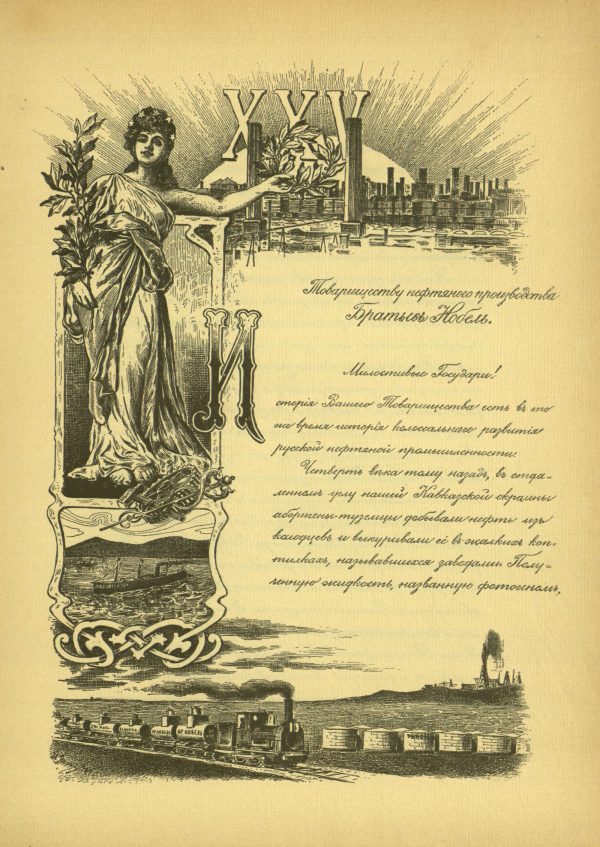 XXV
Товариществу нефтяного производства
Братьевъ Нобель.
Милостивые Государи!
И
сторія Вашего Товарищества есть въ то
же время исторія колоссальнаго развитія
русской нефтяной промышленности.
Четверть вѣка тому назадъ, въ отда-
ленномъ углу нашей Кавказской окраины
аборигены-туземцы добывали нефть изъ
колодцевъ и выкуривали её въ жалкихъ коп-
тилкахъ, называвшихся заводами. Полу-
ченную жидкость, названную фотогеномъ,
БР НОБЕЛЬ